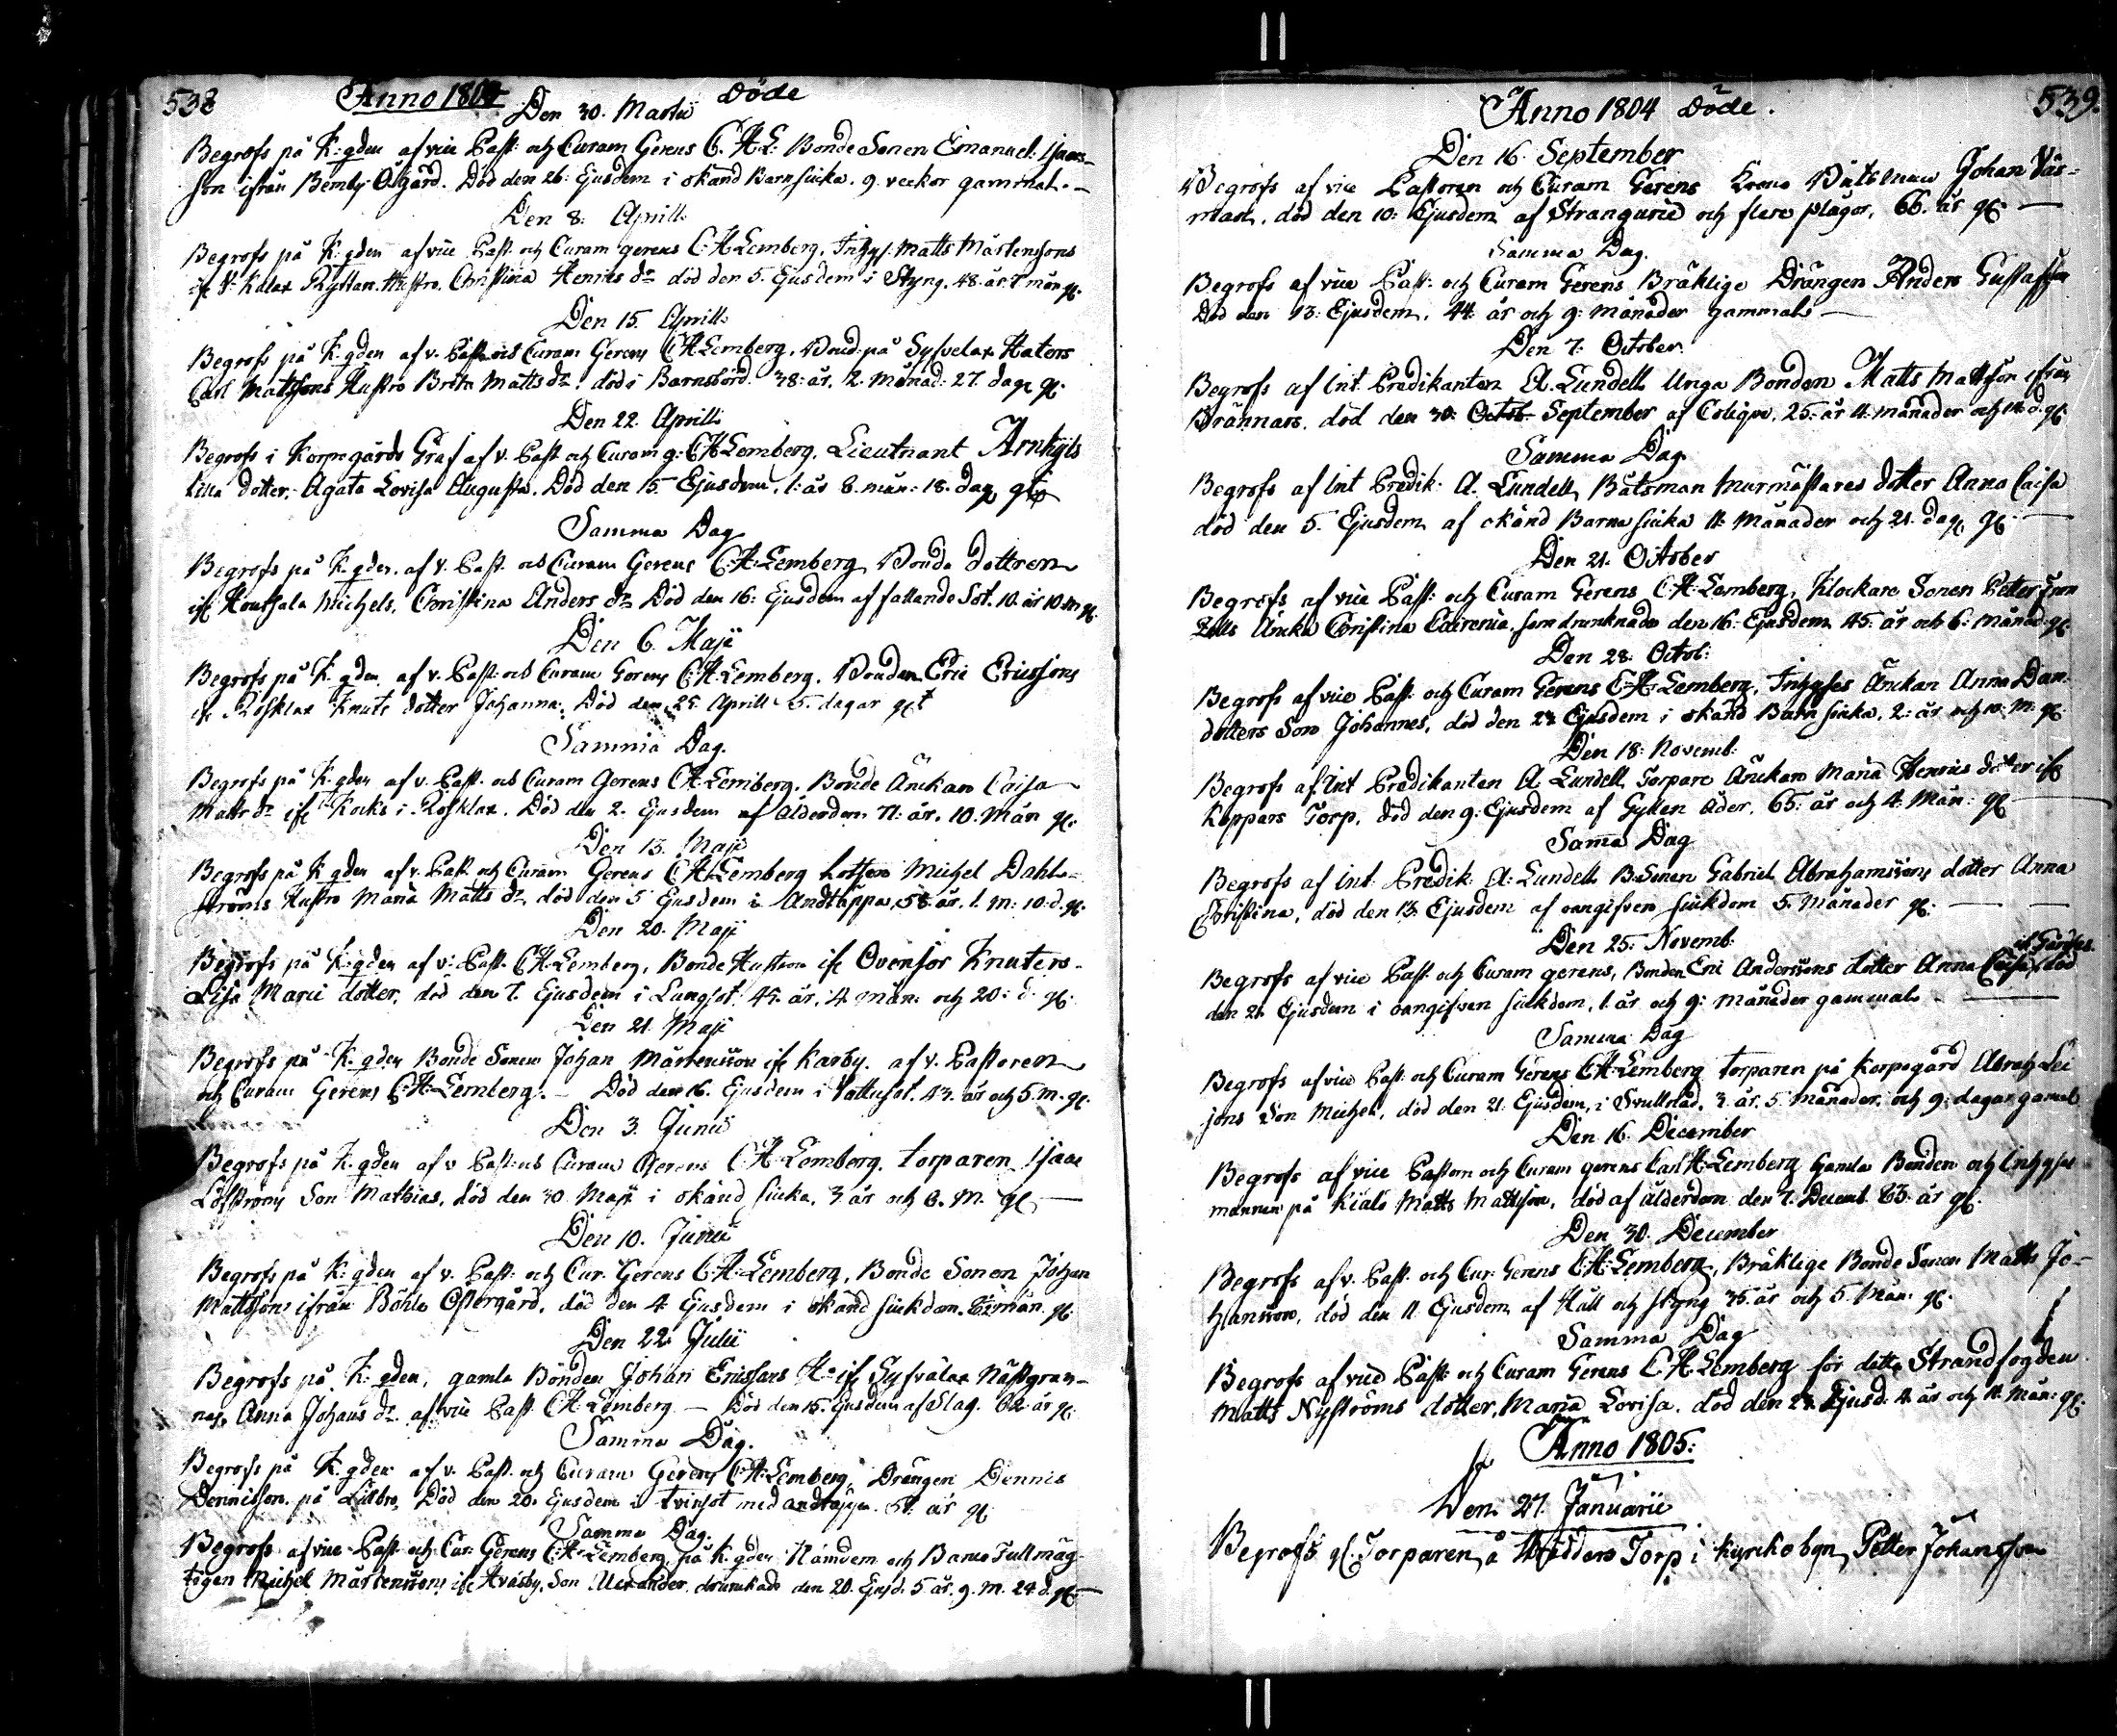 538 Anno 1804 Döde
Den 30. Martii
Begrofs på K: gden af vice Past: och Curam Gerens C. H. L: Bonde Sonen Emanuel Isaac-
son ifrån Bemby Ögård. Död den 26: Ejusdem i okänd Barnsiuka. 9. veckor gammal. –
Den 8: Aprill:
Begrofs på K: gden af vice Past: och Curam gerens C: H Lemberg, Inhys: Matts Mårtenssons
Hustro, Christina Henrics dr död den 5. Ejusdem i Styng. 48. år. mån gl.
Den 15. Aprill:
Begrofs på K: gden af v. Past: och Curam Gerens CH Lemberg. Bond: på Sysvelax Hators
Carl Mattssons Hustro Brita Matts dr. död i Barnsbörd. 38: år. 2. månad: 27. dag. gl.
Den 22. Aprill:
Begrofs i Korpogårds Graf af v. Past och Curam g: CH Lemberg. Lieutnant Arnkijls
lilla dotter, Agata Lovisa Augusta. Död den 15 Ejusdem, 1: år 8. mån: 18. dag gl
Samma Dag
Begrofs på K. gden. af v. Past. och Curam Gerens CH Lemberg Bonde dottren
ifr Houtsala Michels, Christina Anders dr Död den 16: Ejusdem af fallande Sot. 10. år 10. m gl.
Den 6. Maji
Begrofs på K. gden af v. Past: och Curam Gerens CH Lemberg. Bonden Eric Ericssons
ifr Rosklax Knuts dotter Johanna. Död den 25 Aprill 5. dagar gl
Samma Dag.
Begrofs på K. gden af v. Past. och Curam Gerens CH Lemberg. Bonde Änckan Caisa
Matts dr ifr Kocks i Rosklax. Död den 2. Ejusdem af Ålderdom 71: år. 10. Mån gl.
Den 13. Maji
Begrofs på K gden af v. Past och Curam Gerens CH Lemberg Lotsen Michel Dahl-
ströms Hustro Maria Matts dr död den 5 Ejusdem i Andtäppa. 58 år. 1. m: 10. d. gl.
Den 20. Maji
Begrofs på K: gden af v: Past. CH Lemberg, Bonde Hustron ifr Ovensor Knuters
Lisa Marii dotter, död den 7. Ejusdem i Lungsot. 45. år. 4. mån: och 20: d. gl.
Den 21. Maji
Begrofs på K. gden Bonde Sonen Johan Mårtensson ifr Karby. af v. Pastoren
och Curam Gerens CH Lemberg. – Död den 16. Ejusdem i Vattusot. 43. år och 5. m. gl.
Den 3. Junii
Begrofs på K. gden af v Past: och Curam Gerens C H Lemberg. torparen Isaac
Löfströms Son Mathias, död den 30 Maji i okänd siuka, 3 år och 8. M. gl –
Den 10. Junii
Begrofs på K: gden af v. Past: och Cur. Gerens C: H: Lemberg, Bonde Sonen Johan
Mattsson ifrån Böhle Östergård, död den 4 Ejusdem i okänd siukdom. mån. gl.
Den 22. Julii
Begrofs på K: gden, gamla Bonden Johan Erissons H: ifr Sysvälax Nästgran-
nas, Anna Johans dr. af vice Past. CH Lemberg – Död den 15. Ejusdem af Slag. 62 år gl.
Samma Dag.
Begrofs på K. gden af v. Past. och Curam Gerens CH Lemberg. Drängen Dennis
Dennisson. på Lillbro, Död den 20. Ejusdem i tvinsot med andtäppa. 51: år gl
Samma Dag.
Begrofs af vice Past och Cur: Gerens C: H: Lemberg på K. gden Nämdem och Banco Fullmäg-
tigen Michel Mårtenssons ifr Avasby. Son Alexander. drunknade den 20. Ejusd. 5 år. 9. m. 24 d. gl –
Anno 1804 Döde. 539.
Den 16 September
Begrofs af vice Pastoren och Curam Gerens Krono Båtsman Johan Väs-
mast. död den 10: Ejusdem af Strangurie och flere plågor, 66. år gl. –
Samma Dag.
Begrofs af vice Past: och Curam Gerens Bräklige Drängen Anders Gustafsson
Död den 13: Ejusdem. 44 år och 9: månader gammal –
Den 7: October.
Begrofs af Int. Predikanten A. Lundell Unga Bonden Matts Mattsson ifrån
Brännars. död den 30: Octob. September af Colique, 25: år 11: månader och 14. d. gl.
Samma Dag
Begrofs af Int Predik: A. Lundell, Båtsman Murmästares dotter Anna Caisa
död den 5. Ejusdem af okänd Barna siuka 11 Månader och 21. dag. gl. –
Den 21. October
Begrofs af vice Past: och Curam Gerens C. H. Lemberg, Klockare Sonen Petter
Änka Christina Catrerina. som drunknade den 16: Ejusdem 45: år och 6: månad. gl.
Den 28: Octob:
Begrofs af vice Past: och Curam Gerens C: H: Lemberg, Inhyses Änckan Anna Dan.
dotters Son Johannes, död den 23 Ejusdem i okänd Barn siuka, 2: år och 10: m: gl
Den 18: Novemb:
Begrofs af Int Predikanten A Lundell Torpare Änckan Maria Henrics dotter ifr
Koppars Torp, död den 9: Ejusdem af Gyllen åder, 65: år och 4. Mån: gl –
Samma Dag
Begrofs af Int. Predik: A: Lundell B. Sonen Gabriel Abrahamssons dotter Anna
Christina, död den 13. Ejusdem af oangifven siukdom 5. Månader gl. –
Den 25: Novemb:
Begrofs af vice Past: och Curam gerens, Bonden Eric Anderssons dotter Anna Caisa ifr Gärdes död
den 21 Ejusdem i oangifven siukdom, 1. år och 9: månader gammal –
Samma Dag
Begrofs af vice Past: och Curam Gerens CH: Lemberg torparen på Korpogård Abrah Lei
jons Son Michel, död den 21 Ejusdem, i Svullnad, 3 år. 5 månader, och 9: dagar gamal
Den 16 December
Begrofs af vice Pastorn och Curam gerens Carl H Lemberg Gamla Bonden och Inhyses
mannen på Kiälö Matts Mattsson, död af ålderdom den 7. Decemb 83: år gl.
Den 30. December
Begrofs af v. Past. och Cur: Gerens C: H: Lemberg, Bräklige Bonde Sonen Matts Jo-
hansson, död den 11. Ejusdem af Håll och styng 35. år och 5 Mån. gl.
Samma Dag
Begrofs af vice Past: och Curam Gerens C H: Lemberg för detta Strandfogden
Matts Nyströms dotter, Maria Lovisa. död den 27. Ejusd: 4. år och 11. Mån: gl.
Anno 1805:
Den 27. Januarii
Begrofs gl. Torparen å Torp i kyrkobyn, Petter Johansson